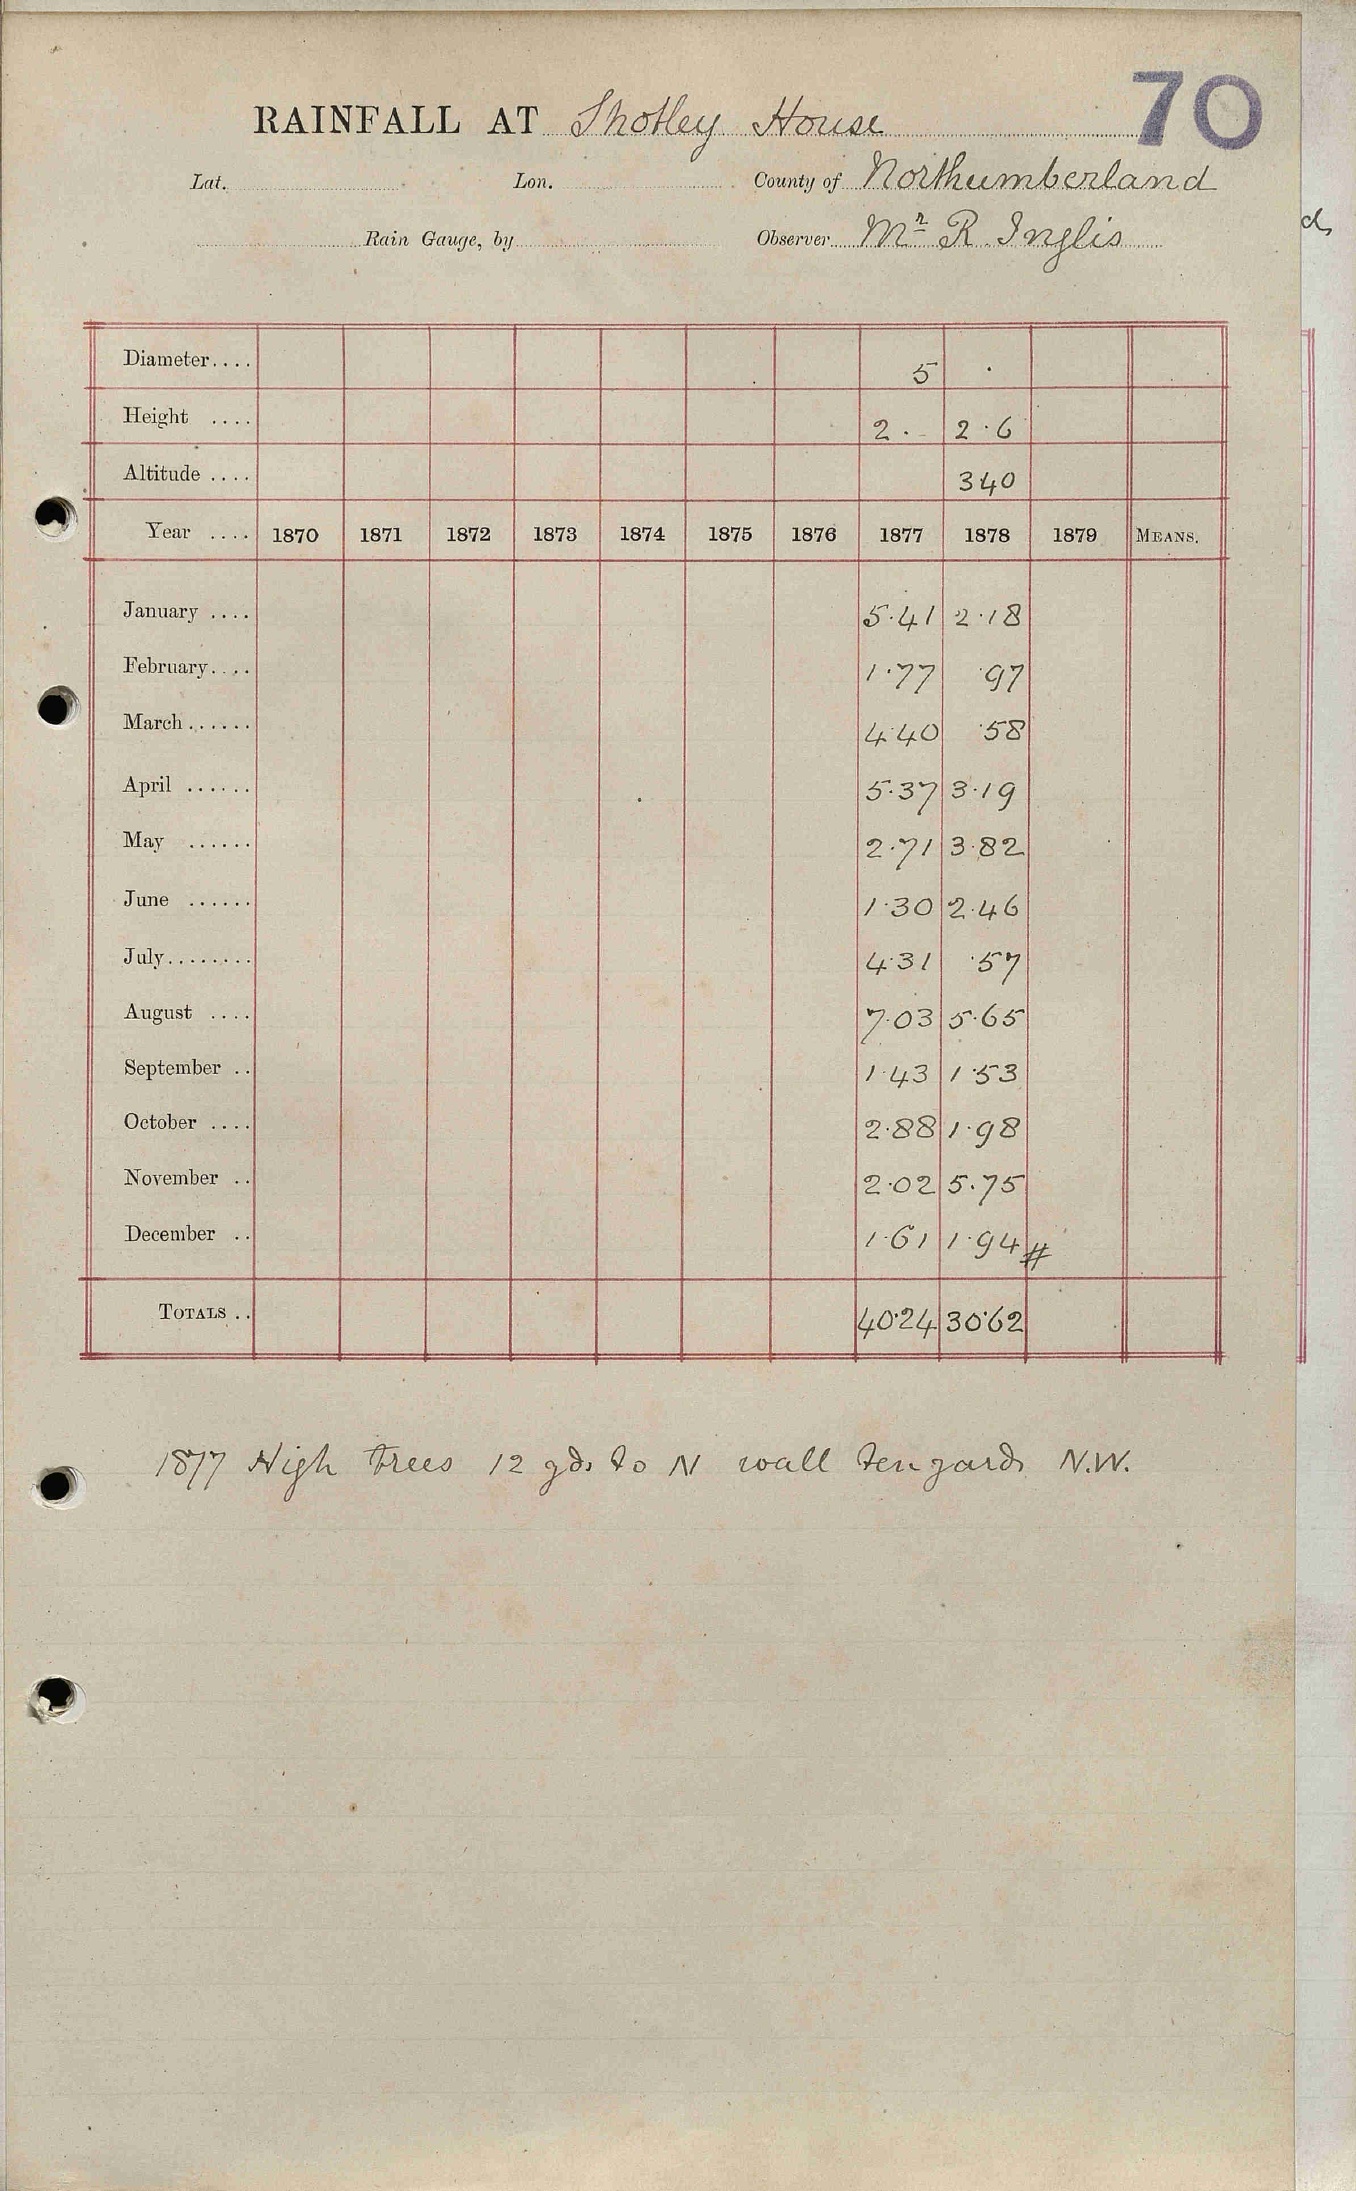 70
RAINFALL AT Shotley House
Lat. Lon. County of Northumberland
Rain Gauge, by Observer Mr R. Inglis
Diameter.... 5 .
Height .... 2 . - 2 . 6
Altitude .... 340
Year .... 1870 1871 1872 1873 1874 1875 1876 1877 1878 1879 MEANS.
January .... 5.41 2.18
February.... 1.77 .97
March...... 4.40 .58
April ...... 5.37 3.19
May ...... 2.71 3.82
June ...... 1.30 2.46
July........ 4.31 .57
August .... 7.03 5.65
September .. 1.43 1.53
October .... 2.88 1.98
November .. 2.02 5.75
December .. 1.61 1.94 #
TOTALS .. 40.24 30.62
1877 High trees 12 yds to N wall ten yards N.W.